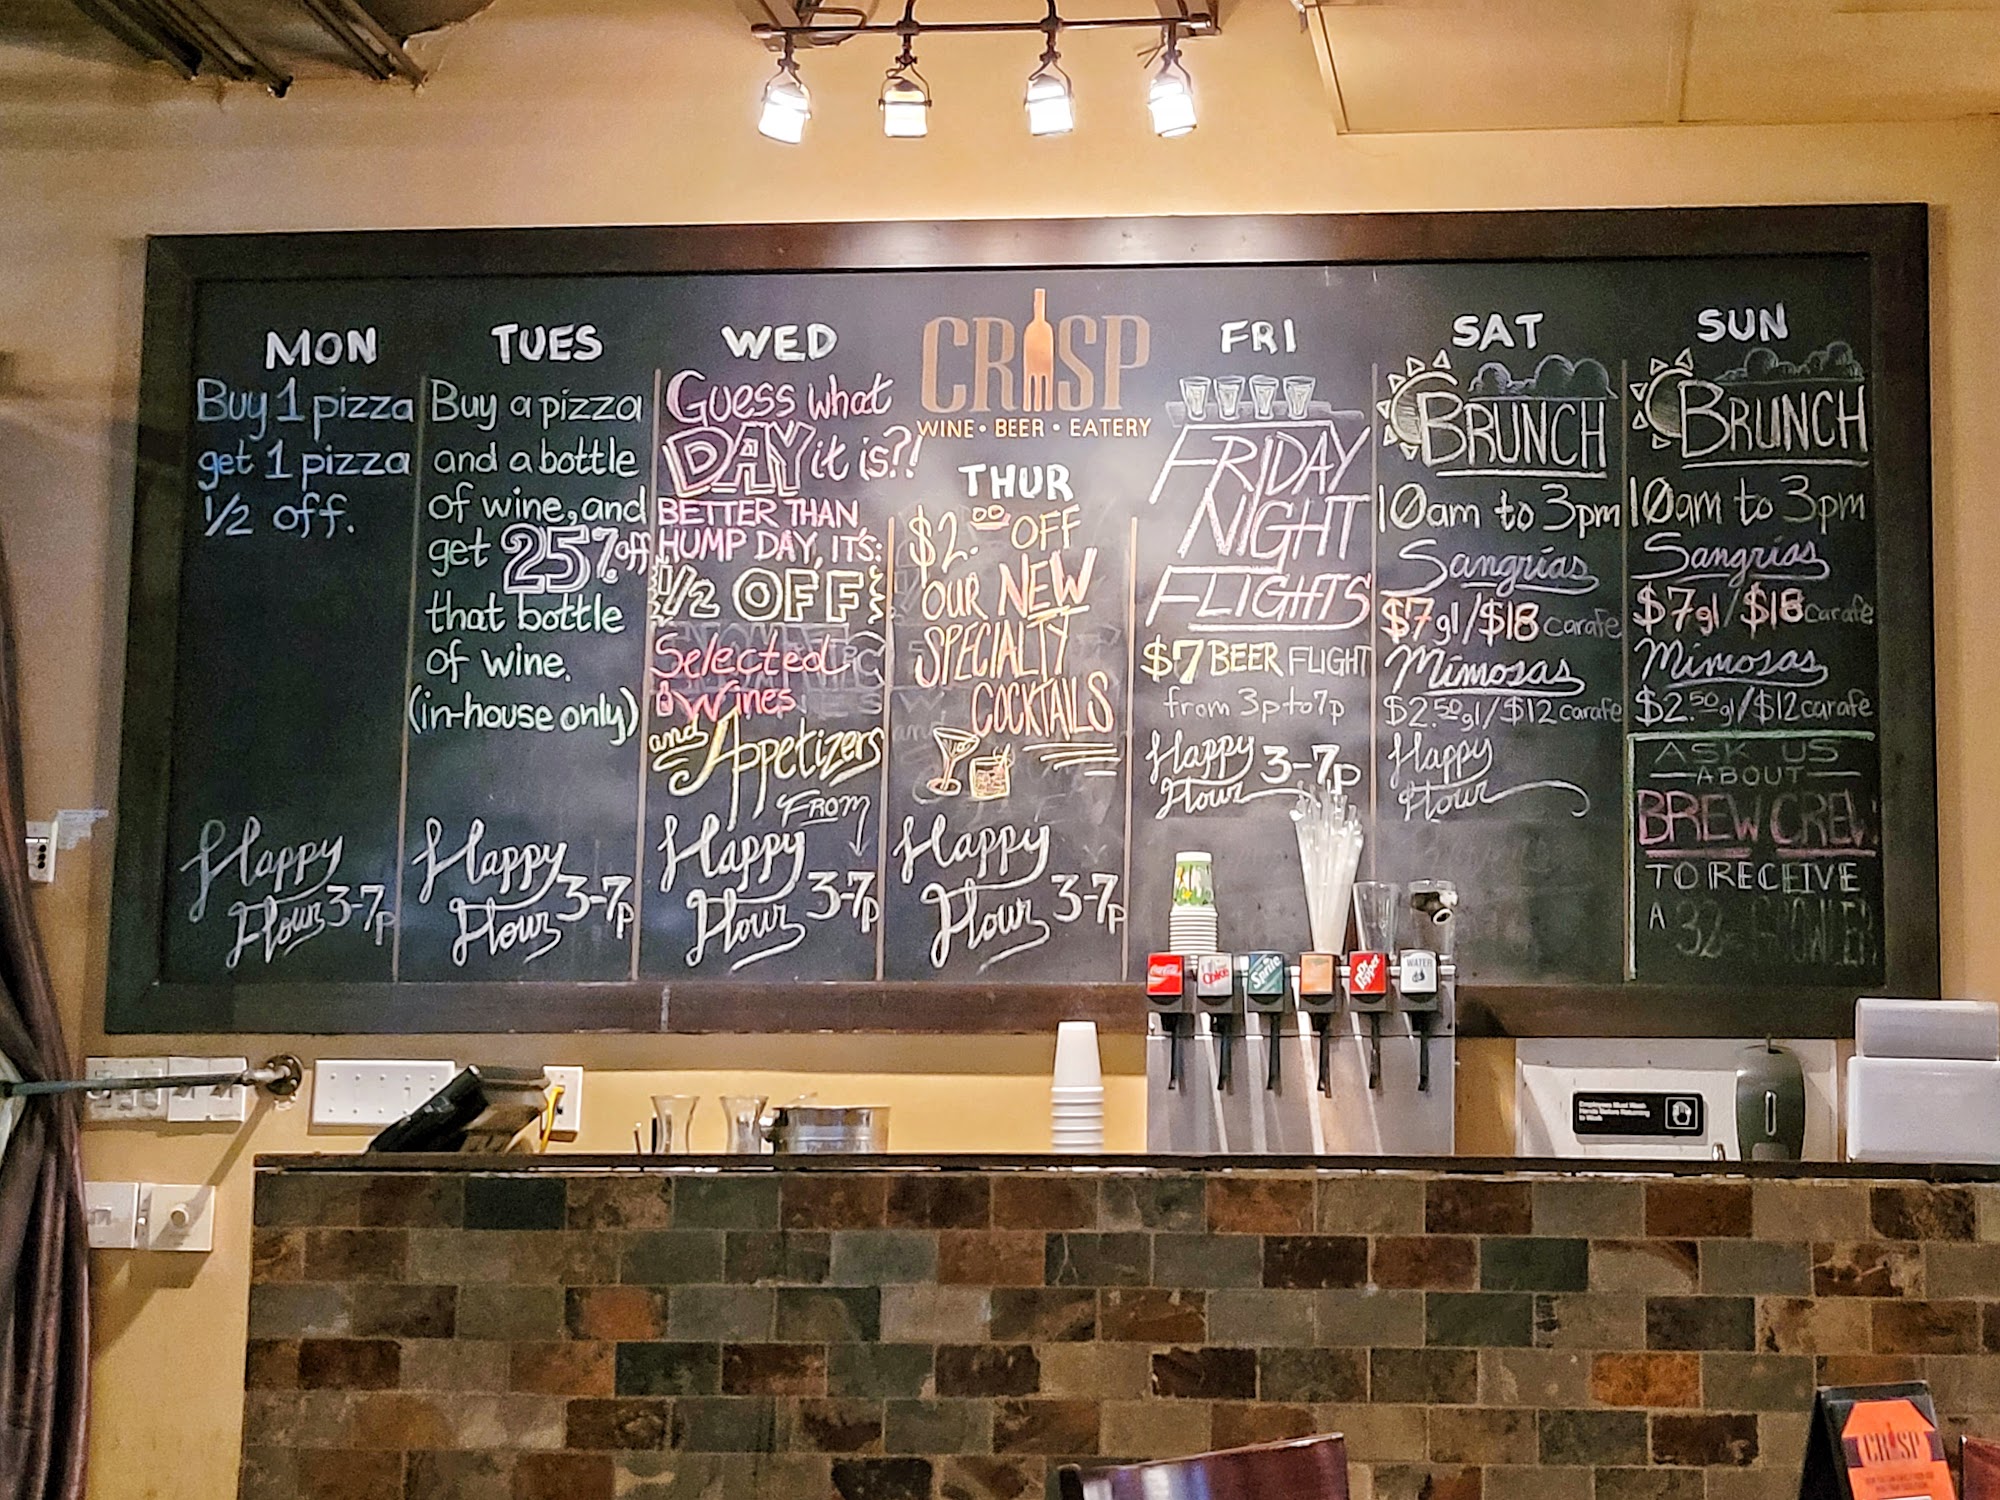 MON
Buy 1 pizza
get 1 pizza
1/2 off.
Happy
Hour 3-7p
TUES
Buy a pizza
and a bottle
of wine, and
get 25% off
that bottle
of wine.
(in-house only)
Happy
Hour 3-7p
WED
Guess what
DAY it is?!
BETTER THAN
HUMP DAY, IT'S:
1/2 OFF
Selected
Wines
and Appetizers
FROM
Happy
Hour 3-7p
CRISP
WINE • BEER • EATERY
THUR
$2.00 OFF
OUR NEW
SPECIALTY
COCKTAILS
Happy
Hour 3-7p
FRI
FRIDAY
NIGHT
FLIGHTS
$7 BEER FLIGHT
from 3p to 7p
Happy
Hour 3-7p
SAT
BRUNCH
10am to 3pm
Sangrias
$7gl/$18 carafe
Mimosas
$2.50gl/$12 carafe
Happy
Hour
SUN
BRUNCH
10am to 3pm
Sangrias
$7gl/$18 carafe
Mimosas
$2.50gl/$12 carafe
ASK US
ABOUT
BREW CREW
TO RECEIVE
A 32 GROWLER
Coca-Cola
Coke
Sprite
Dr Pepper
WATER
Employees Must Wash
Hands Before Returning
to Work
CRISP